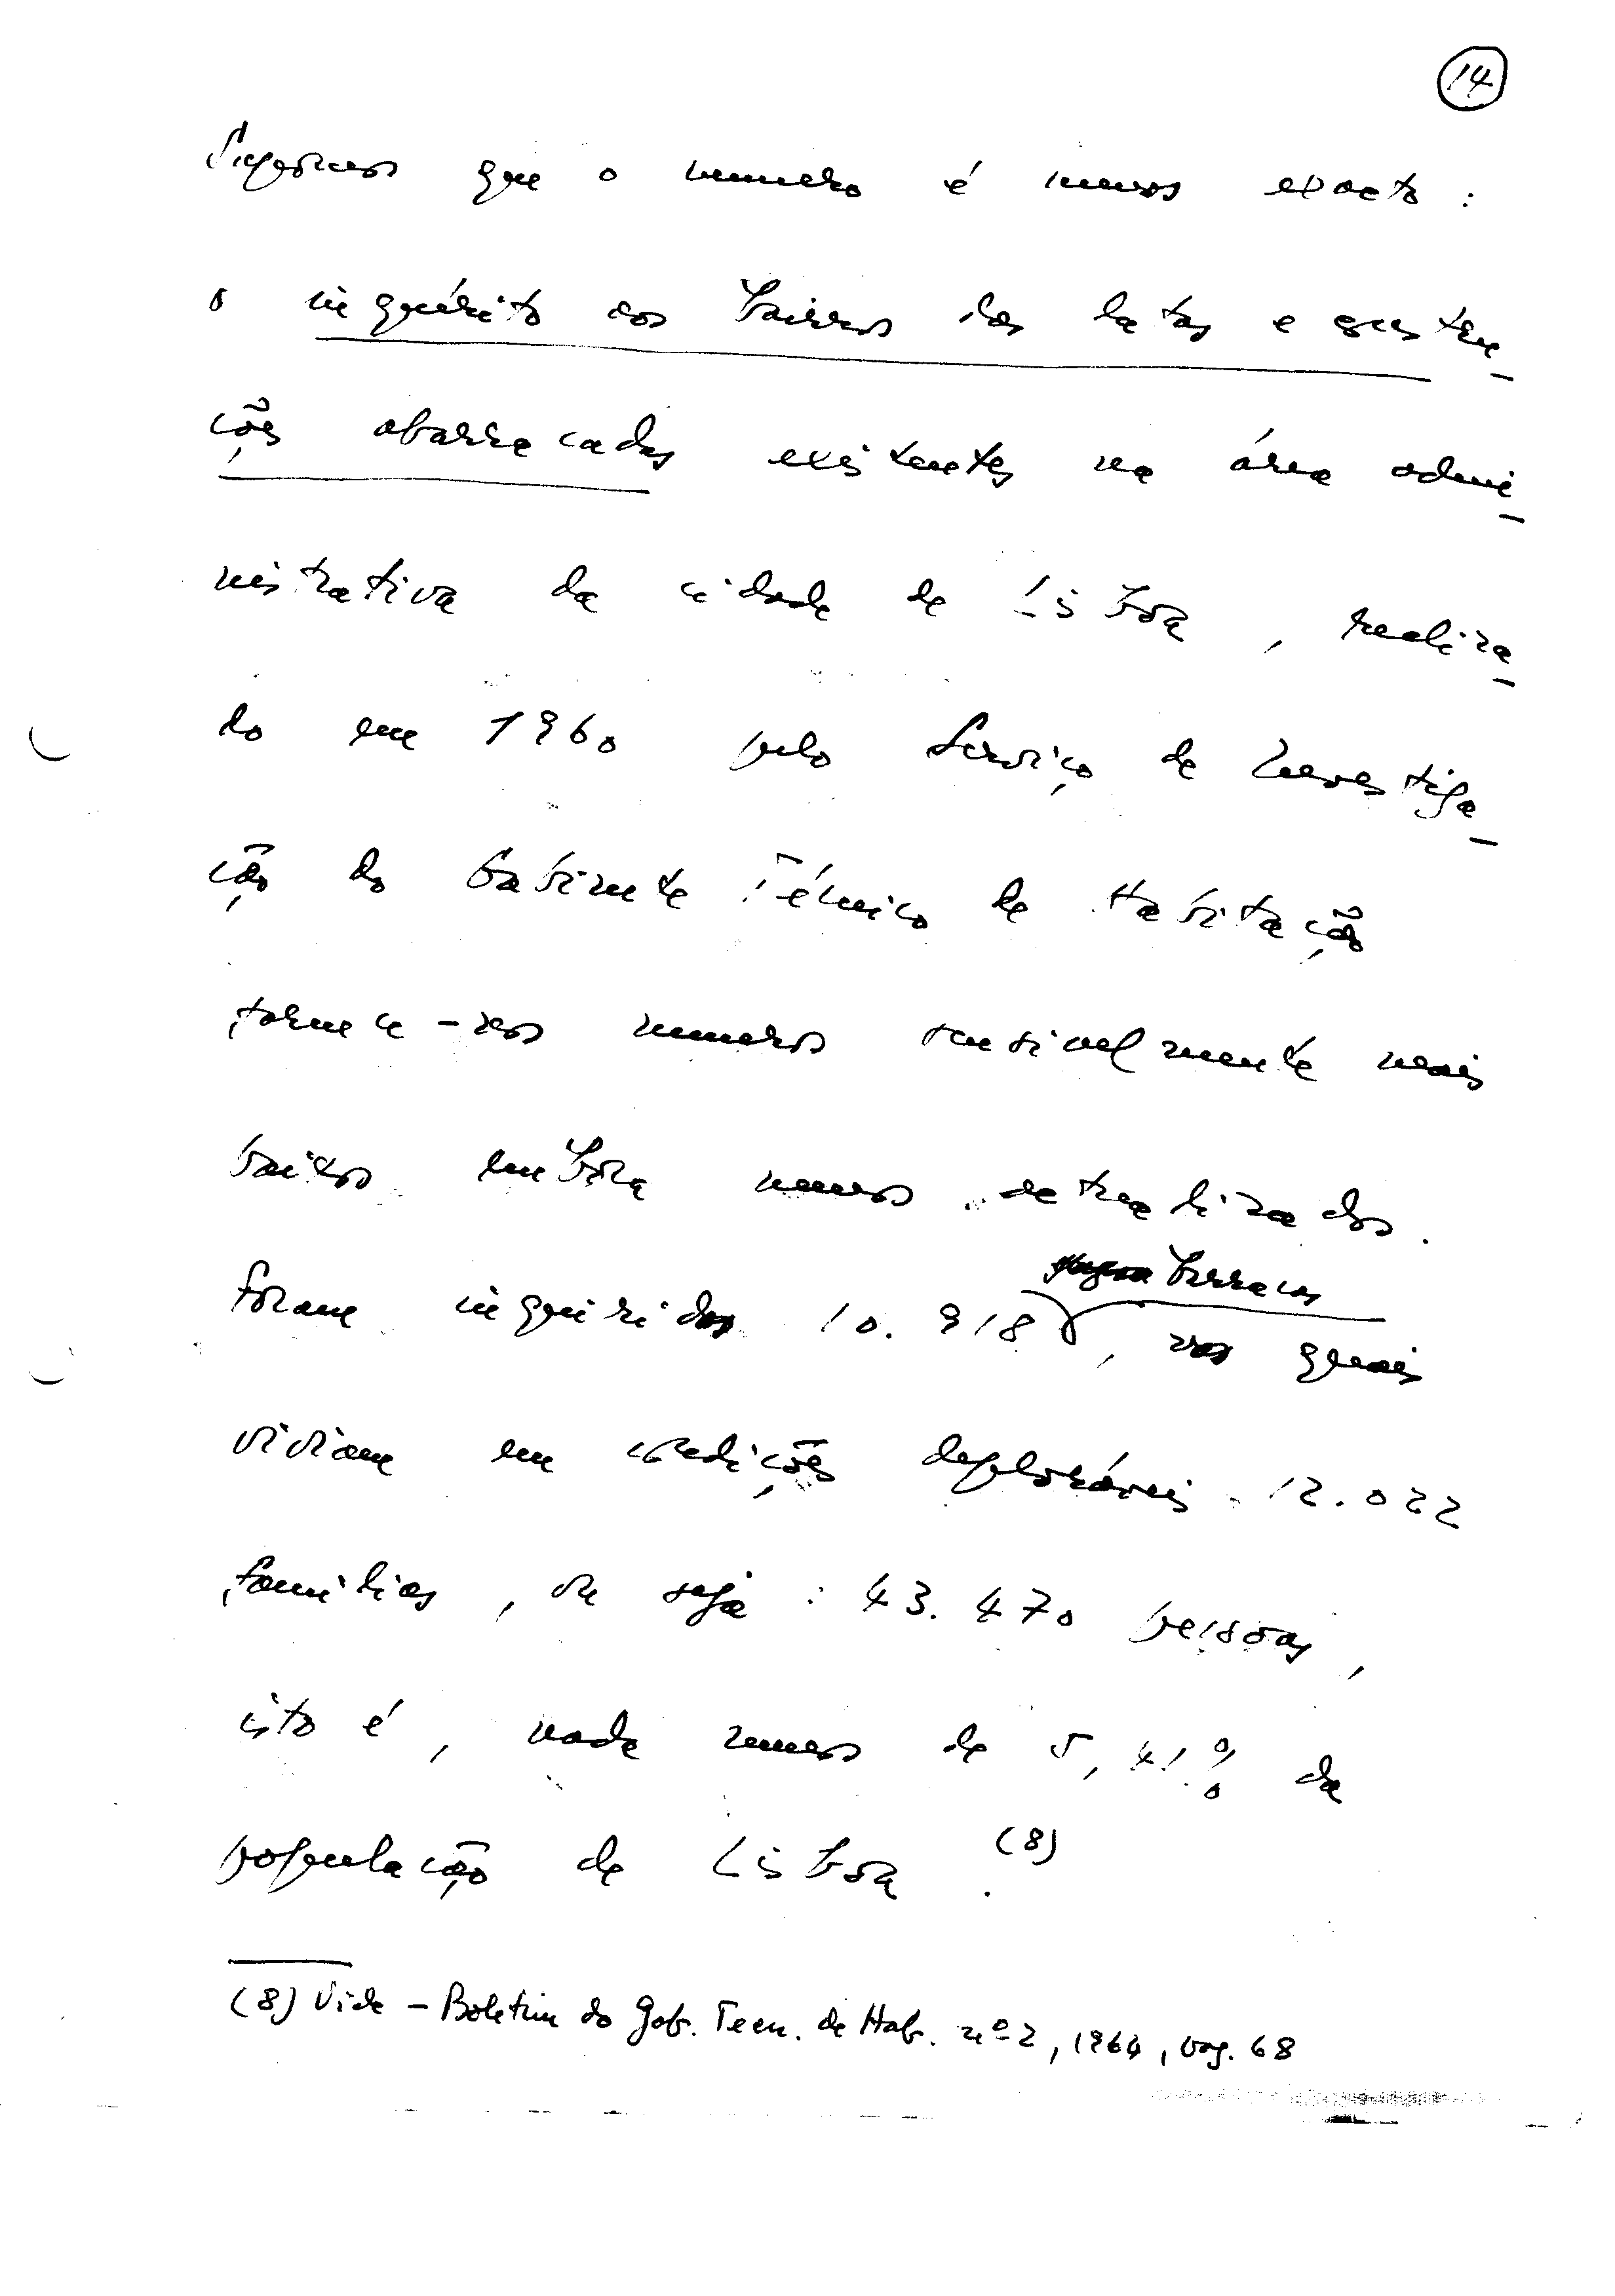 14
Supomos que o numero é menos exacto :
o inquérito aos bairros das latas e constru-
ções abarracadas existentes na área admi-
nistrativa da cidade de Lisboa , realiza-
do em 1960 pelo Serviço de Investiga-
ção do Gabinete Técnico de Habitação
fornece-nos numeros sensivelmente mais
baixos embora menos
Foram inquiridos 10.918 barracas , nas quais
viviam em condições deploráveis 12.022
familias , ou seja : 43.470 pessoas ,
isto é , nada menos de 5,41% da
população de Lisboa . (8)
(8) Vide - Boletim do Gab. Tecn. de Hab. nº 2 , 1964 , pag. 68